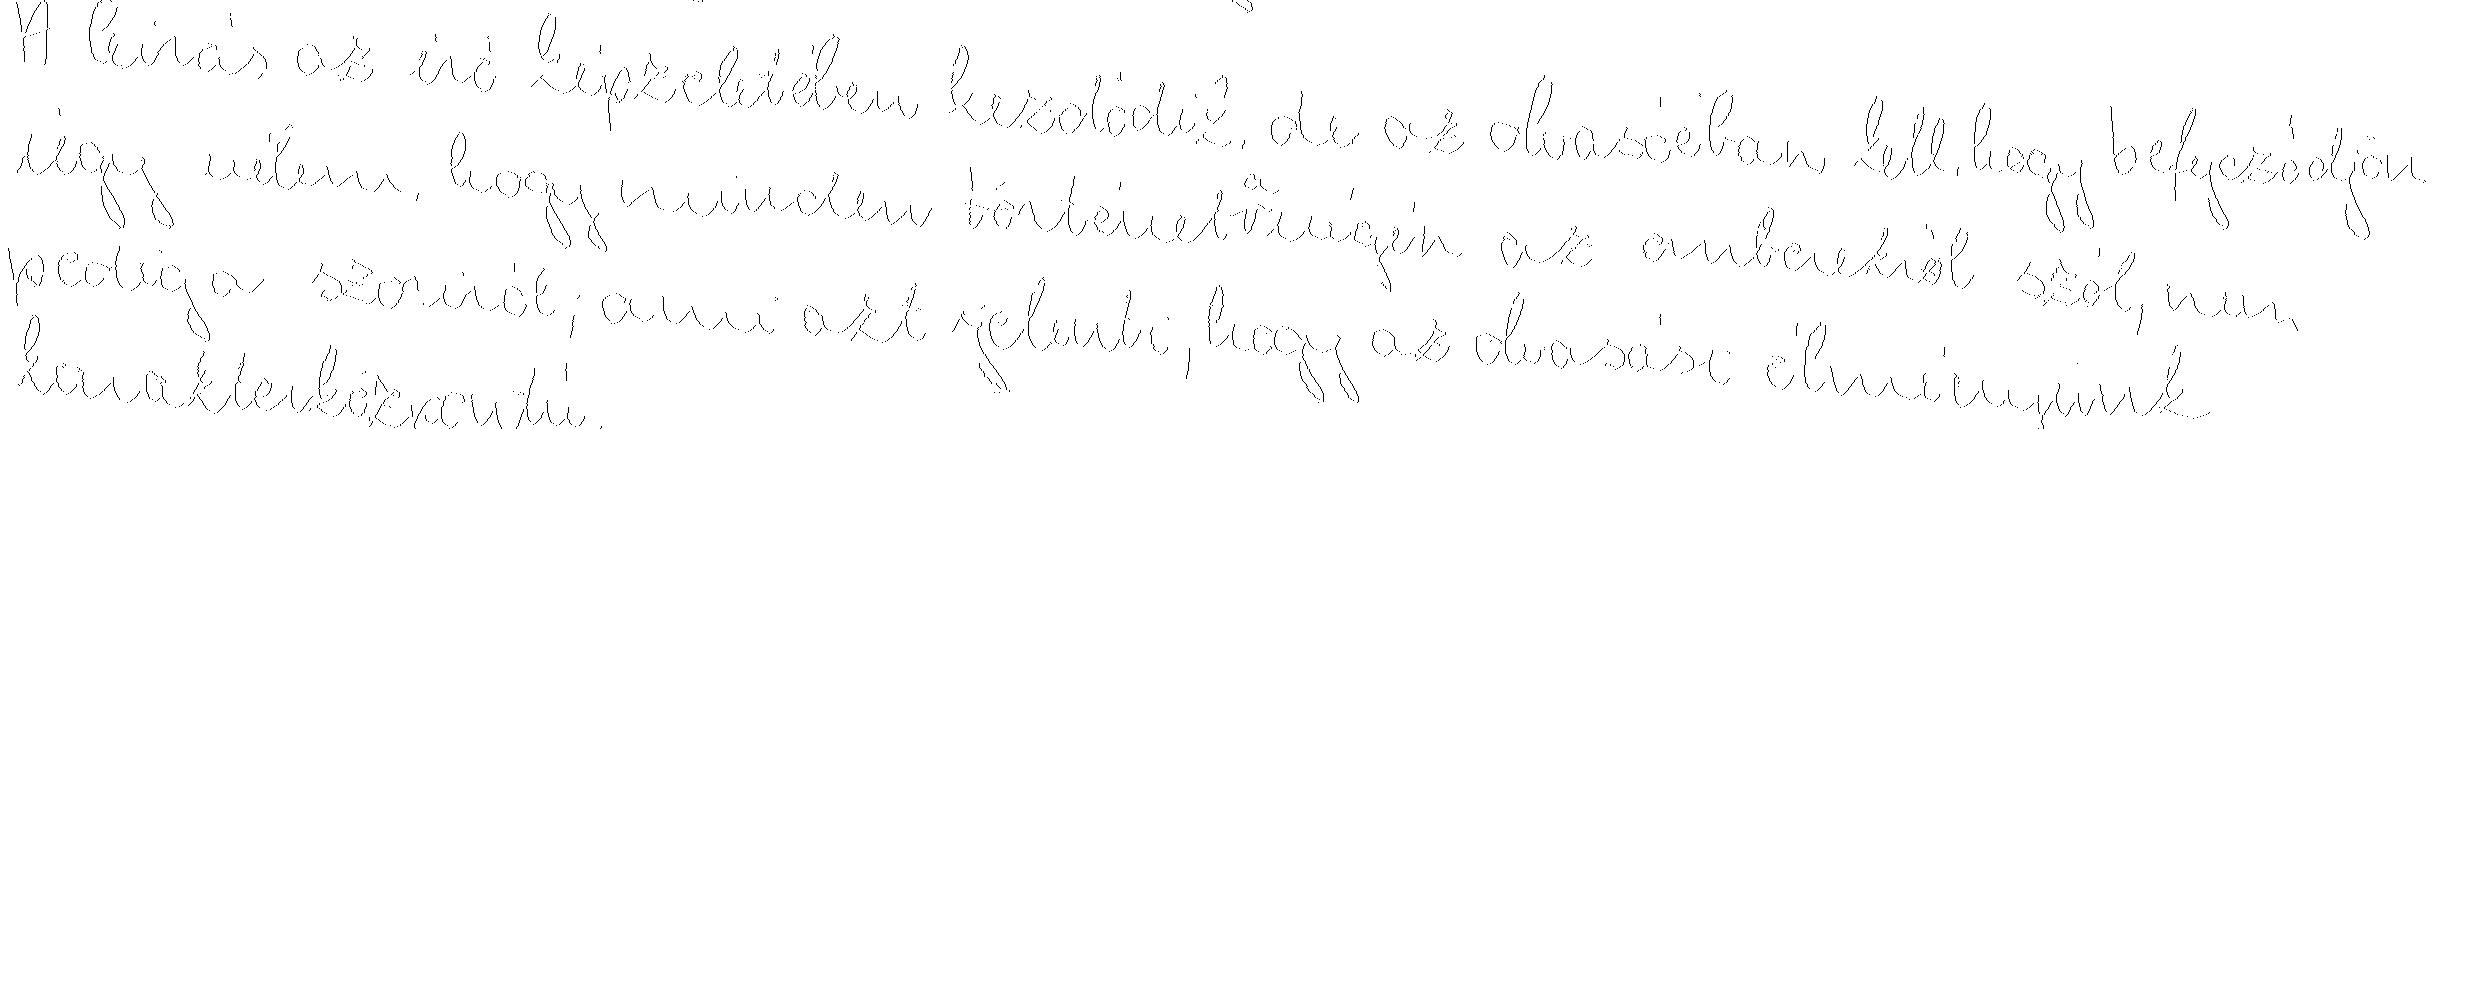 A leírás az író képzeletében kezdődik, de az olvasóéban kell, hogy befejeződjön
úgy vélem, hogy minden történet a végén az emberekről szól, nem
pedig a szóval, ami azt jelenti, hogy az olvasási élményünk
karakterközpontú.